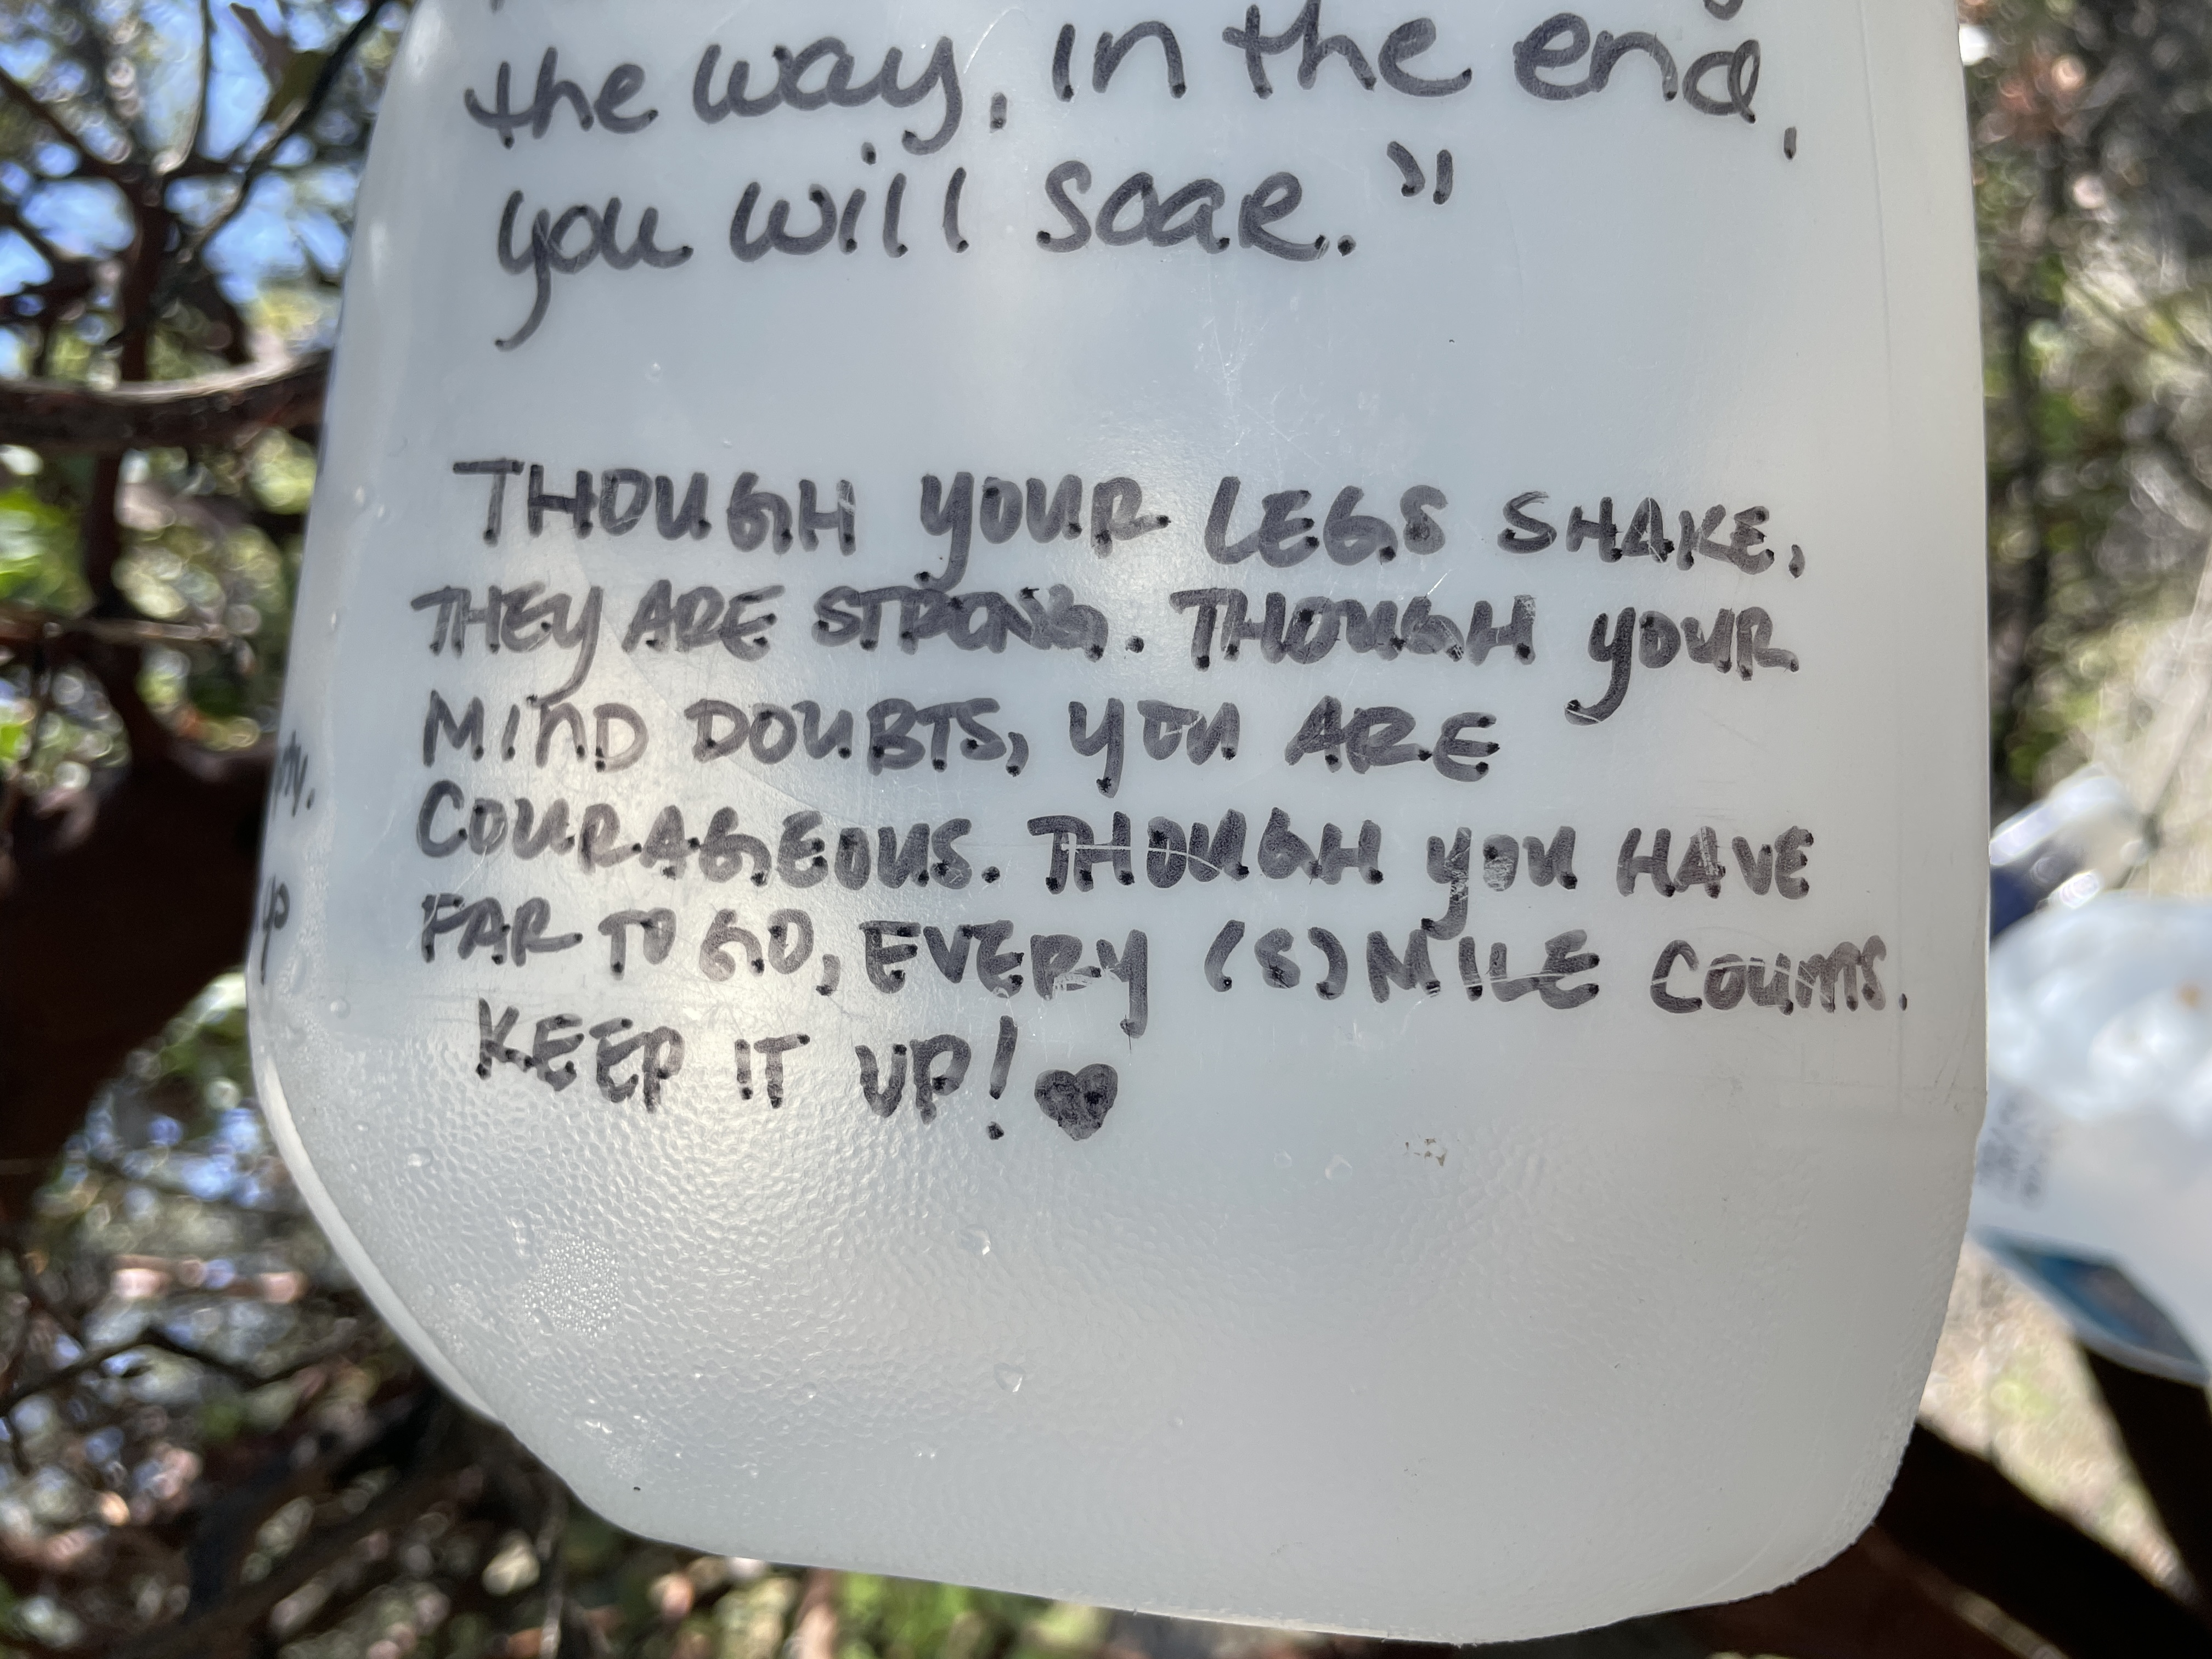 the way, in the end,
you will soar."
THOUGH YOUR LEGS SHAKE,
THEY ARE STRONG. THOUGH YOUR
MIND DOUBTS, YOU ARE
COURAGEOUS. THOUGH YOU HAVE
FAR TO GO, EVERY (S)MILE COUNTS.
KEEP IT UP! ♥